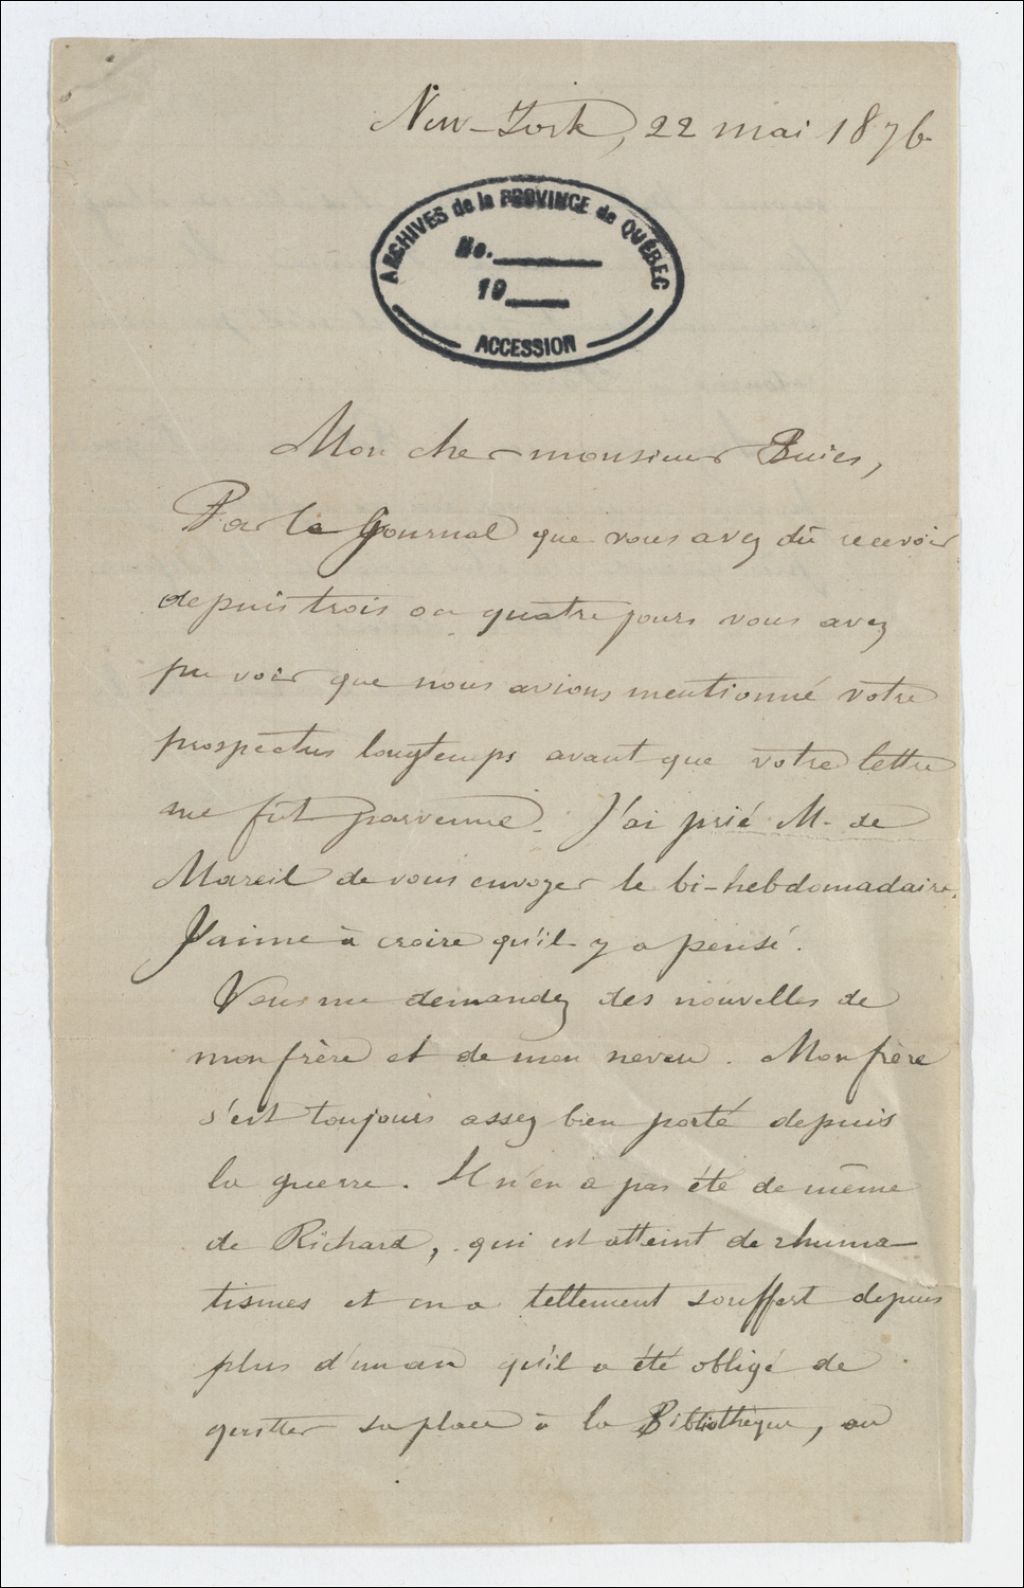 New-York, 22 mai 1876
ARCHIVES de la PROVINCE de QUÉBEC
No.
19
ACCESSION
Mon cher monsieur Buies,
Par le Journal que vous avez dû recevoir
depuis trois ou quatre jours vous avez
pu voir que nous avions mentionné votre
prospectus longtemps avant que votre lettre
me fût parvenue. J'ai prié M. de
Mareil de vous envoyer le bi-hebdomadaire.
J'aime à croire qu'il y a pensé.
Vous me demandez des nouvelles de
mon frère et de mon neveu. Mon frère
s'est toujours assez bien porté depuis
la guerre. Il n'en a pas été de même
de Richard, qui est atteint de rhuma-
tismes et en a tellement souffert depuis
plus d'un an qu'il a été obligé de
quitter sa place à la Bibliothèque, au